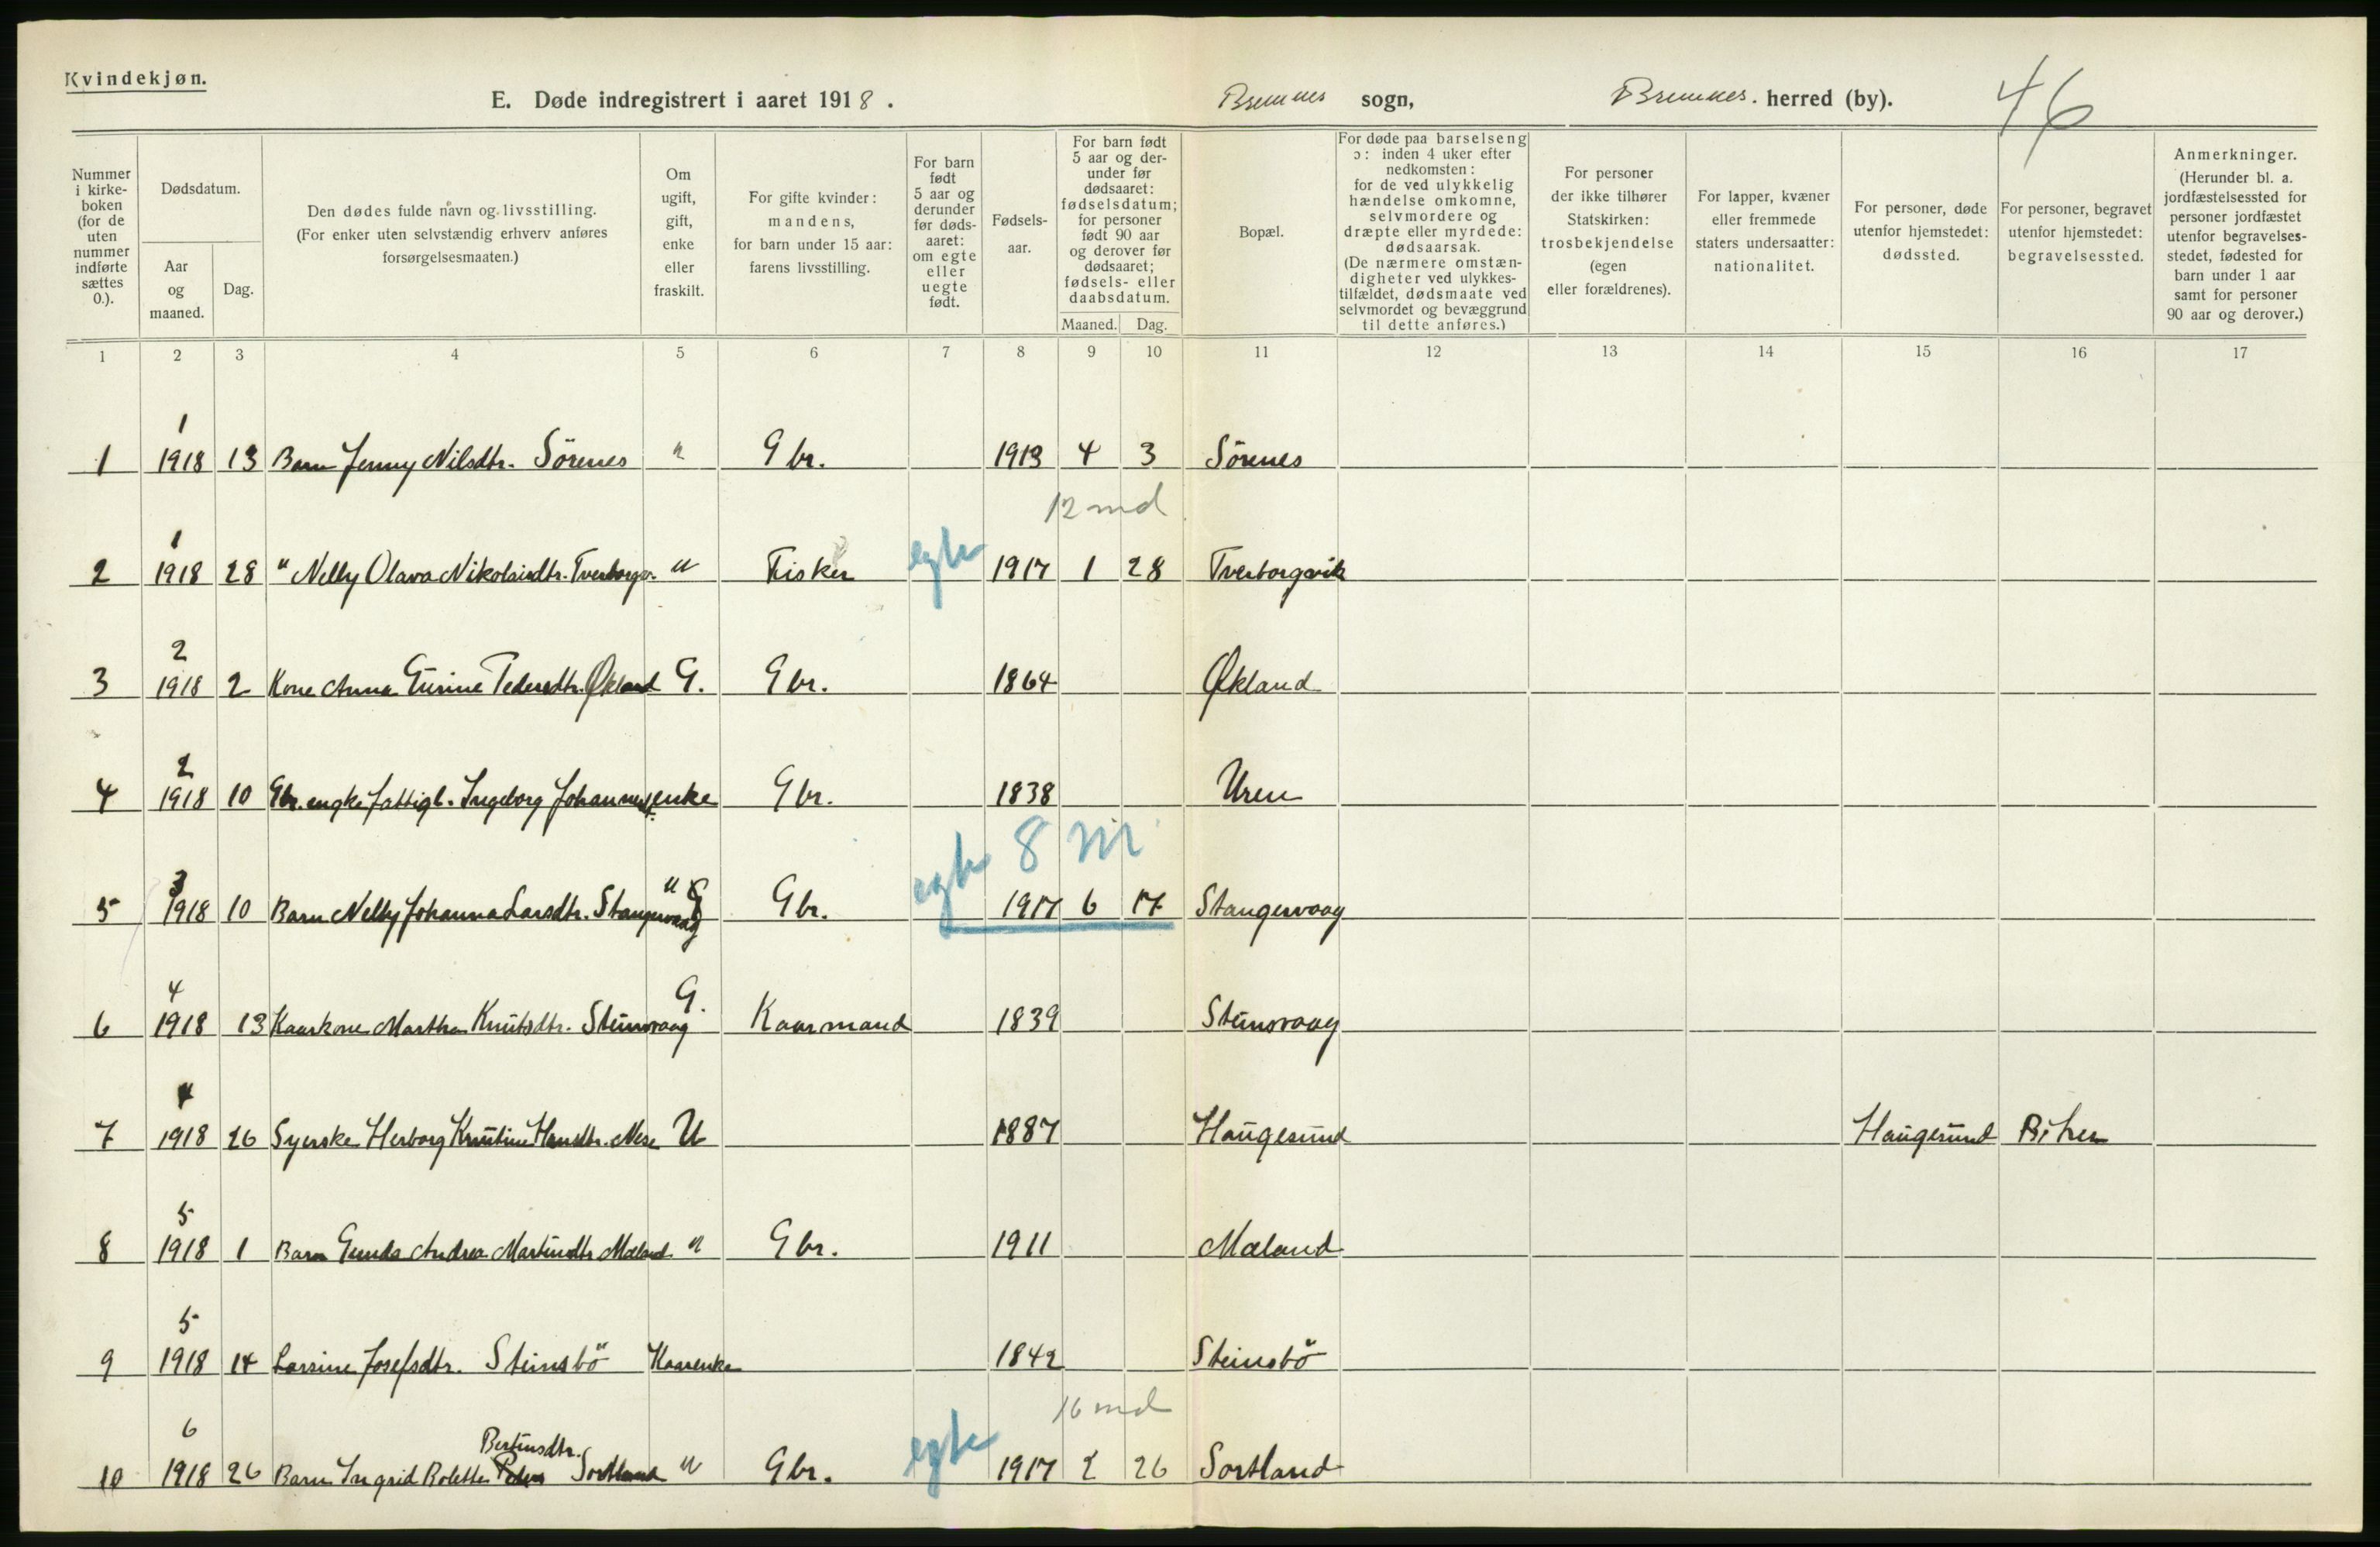 Kvindekjøn.
E. Døde indregistrert i aaret 1918.
Bremnes sogn, Bremnes. herred (by). 46
Nummer i kirke-boken (for de uten nummer indførte sættes 0.).
Dødsdatum.
Aar og maaned.
Dag.
Den dødes fulde navn og livsstilling.
(For enker uten selvstændig erhverv anføres forsørgelsesmaaten.)
Om ugift, gift, enke eller fraskilt.
For gifte kvinder: mandens, for barn under 15 aar: farens livsstilling.
For barn født 5 aar og derunder før døds-aaret: om egte eller uegte født.
Fødsels-aar.
For barn født 5 aar og der-under før dødsaaret: fødselsdatum; for personer født 90 aar og derover før dødsaaret; fødsels- eller daabsdatum.
Maaned. Dag.
Bopæl.
For døde paa barselseng ɔ: inden 4 uker efter nedkomsten: for de ved ulykkelig hændelse omkomne, selvmordere og dræpte eller myrdede: dødsaarsak. (De nærmere omstæn-digheter ved ulykkes-tilfældet, dødsmaate ved selvmordet og bevæggrund til dette anføres.)
For personer der ikke tilhører Statskirken: trosbekjendelse (egen eller forældrenes).
For lapper, kvæner eller fremmede staters undersaatter: nationalitet.
For personer, døde utenfor hjemstedet: dødssted.
For personer, begravet utenfor hjemstedet: begravelsessted.
Anmerkninger. (Herunder bl. a. jordfæstelsessted for personer jordfæstet utenfor begravelses-stedet, fødested for barn under 1 aar samt for personer 90 aar og derover.)
1 2 3 4 5 6 7 8 9 10 11 12 13 14 15 16 17
1 1 1918 13 Barn Jenny Nilsdtr. Sörenes u Gbr. 1913 4 3 Sörenes
12 md
2 1 1918 28 " Nelly Olava Nikolaisdtr. Tverborgv. u Fisker egte 1917 1 28 Tverborgvik
3 2 1918 2 Kone Anna Gurine Pedersdtr. Økland G. Gbr. 1864 Økland
4 2 1918 10 Gbr. engke fattigl. Ingeborg Johannesdt. enke Gbr. 1838 Uren
8 m
5 3 1918 10 Barn Nelly Johanna Larsdtr. Stangervaag u Gbr. egte 1917 6 17 Stangervaag
6 4 1918 13 Kaarkone Martha Knutsdtr. Steinsvaag G. Kaarmand 1839 Steinsvaag
7 4 1918 26 Syerske Herborg Knutine Hansdtr. Nese U 1887 Haugesund Haugesund
8 5 1918 1 Barn Gunda Andrea Martinsdtr Mæland u Gbr. 1911 Mæland
9 5 1918 14 Larsine Josefsdtr. Steinsbö Kaarenke 1842 Steinsbö
16 md
Bertinsdtr.
10 6 1918 26 Barn Ingrid Bolette Peders Sortland u Gbr. egte 1917 2 26 Sortland